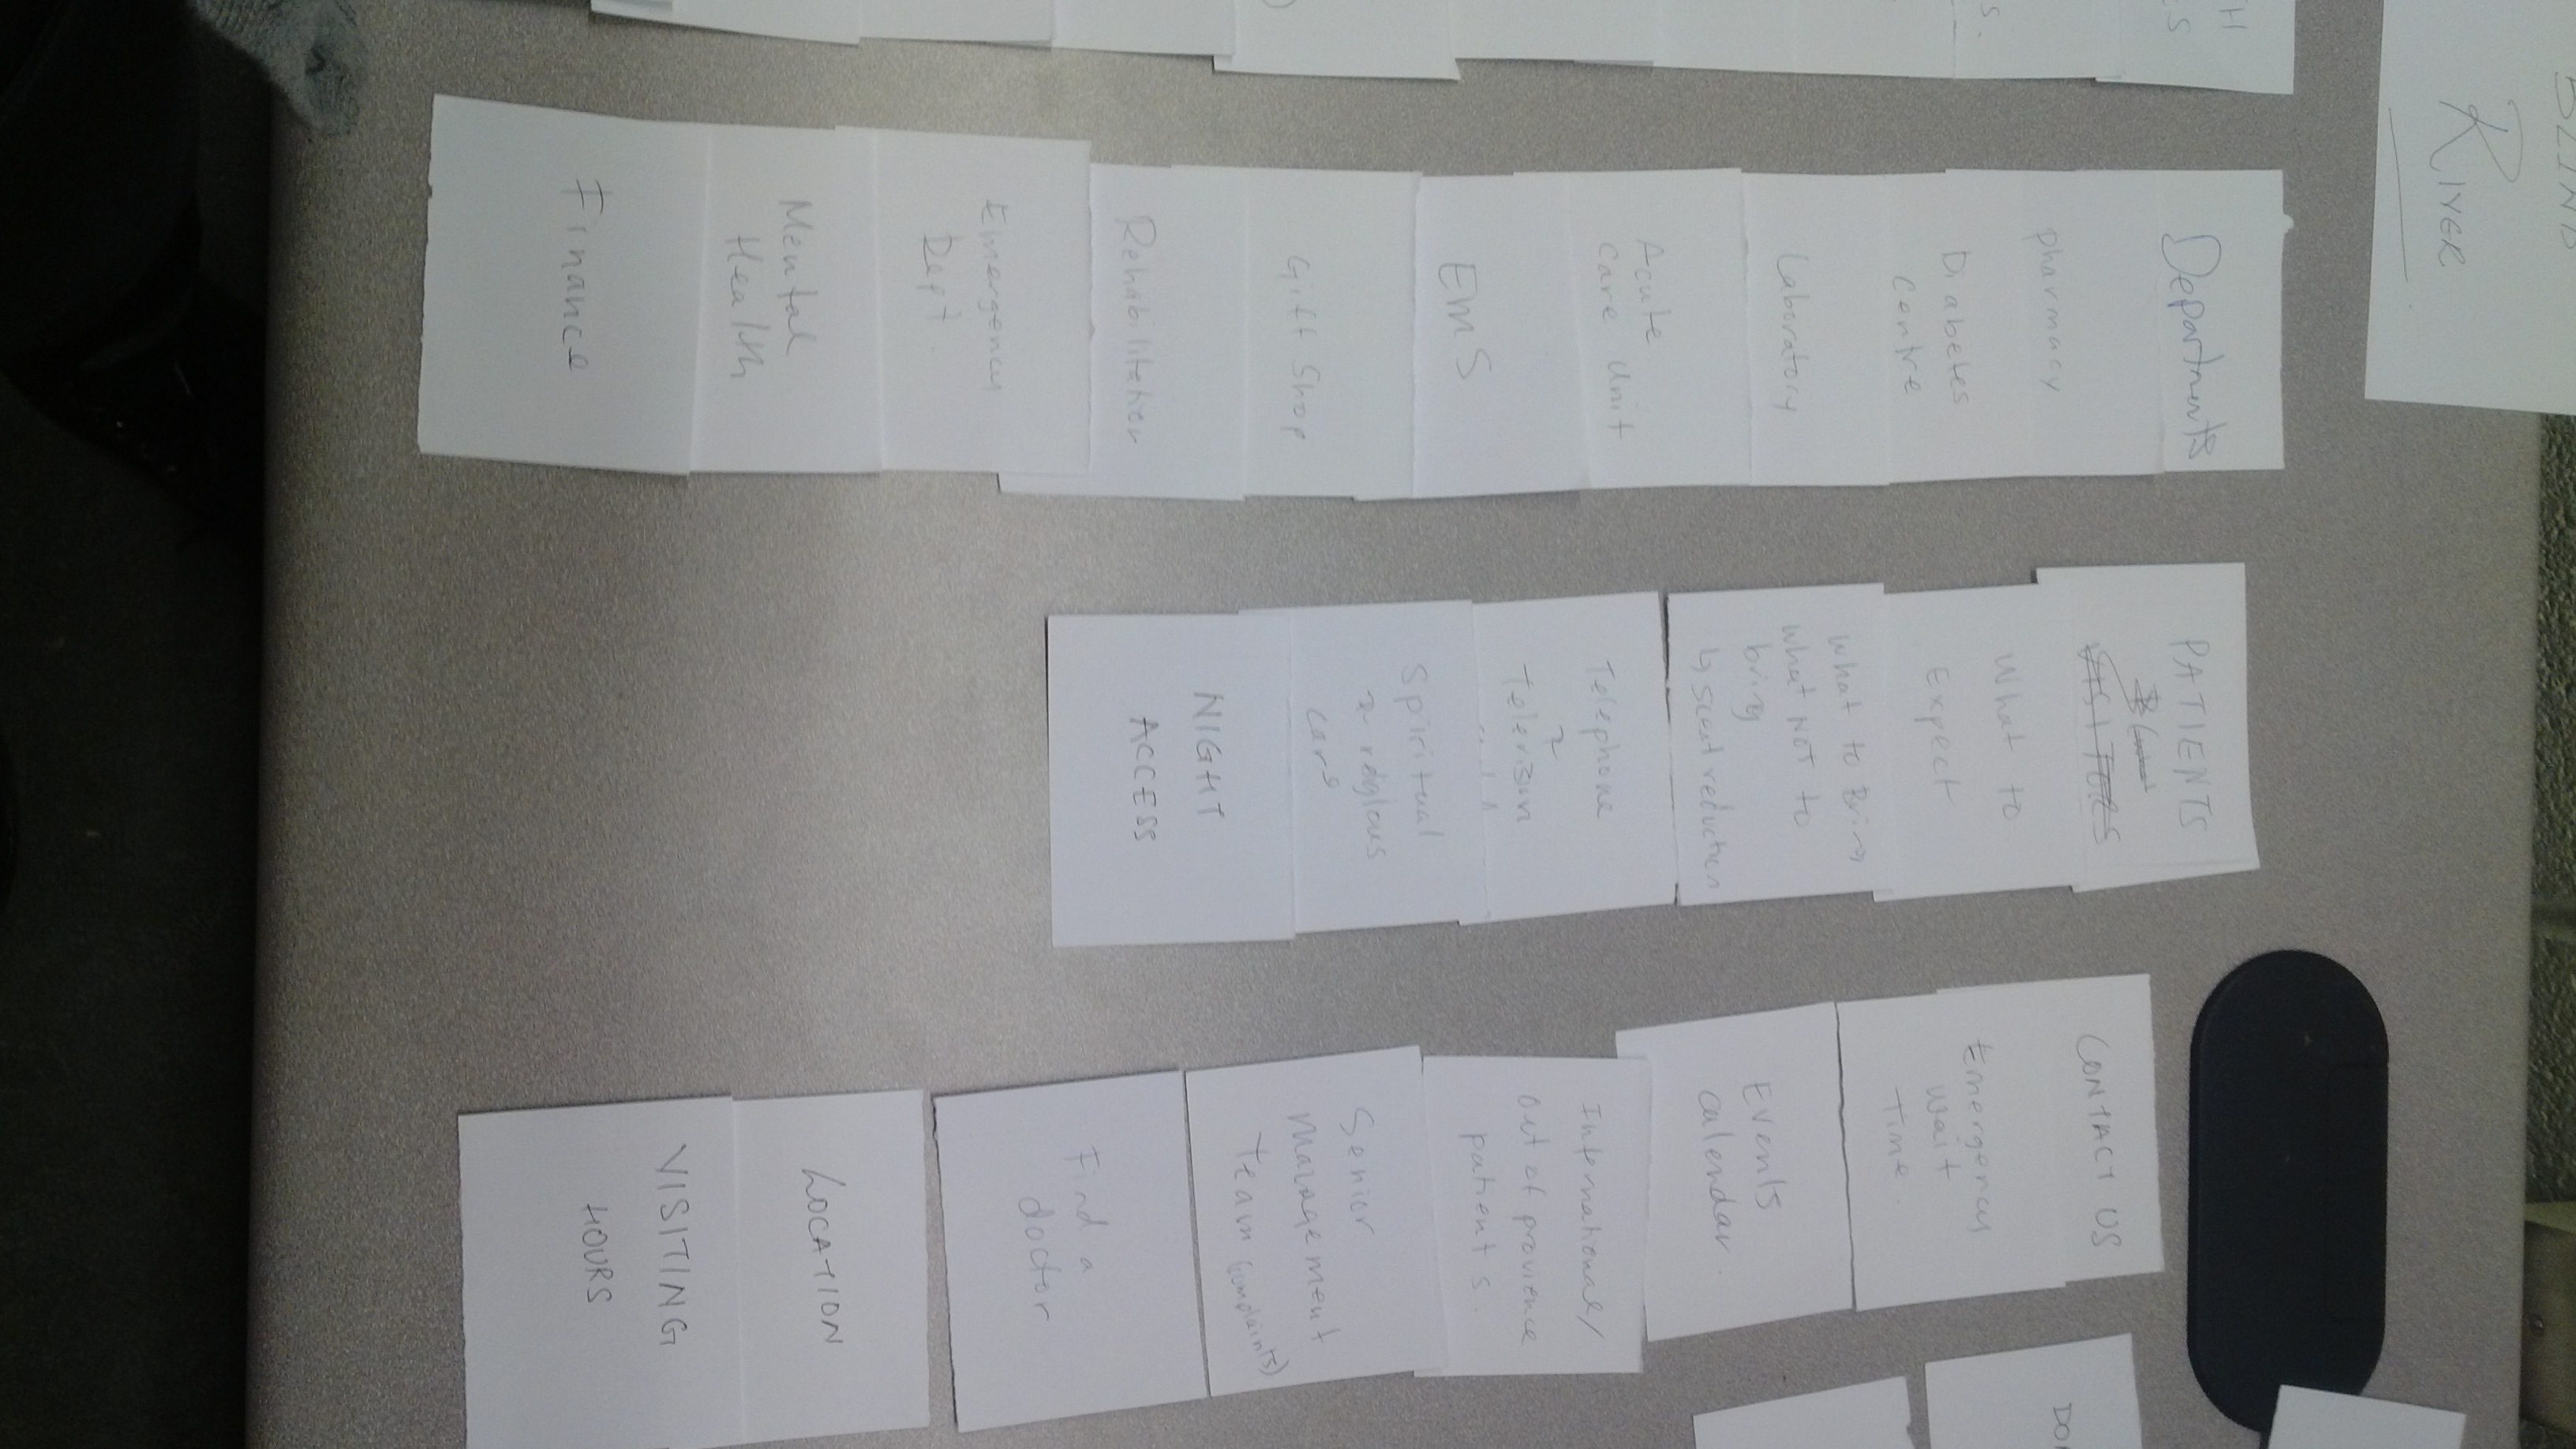 BLIND
RIVER
H
ES
S.
Departments
pharmacy
Diabetes
Centre
Laboratory
Acute
Care Unit
EMS
Gift Shop
Rehabilitation
Emergency
Dept.
Mental
Health
Finance
PATIENTS
What to
Expect
What to Bring
What NOT to
bring
↳ scent reduction
Telephone
&
Television
Spiritual
& religious
care
NIGHT
ACCESS
CONTACT US
Emergency
Wait
Time.
Events
Calendar.
International/
out of provience
patients.
Senior
Management
Team (complaints)
Find a
doctor
LOCATION
VISITING
HOURS